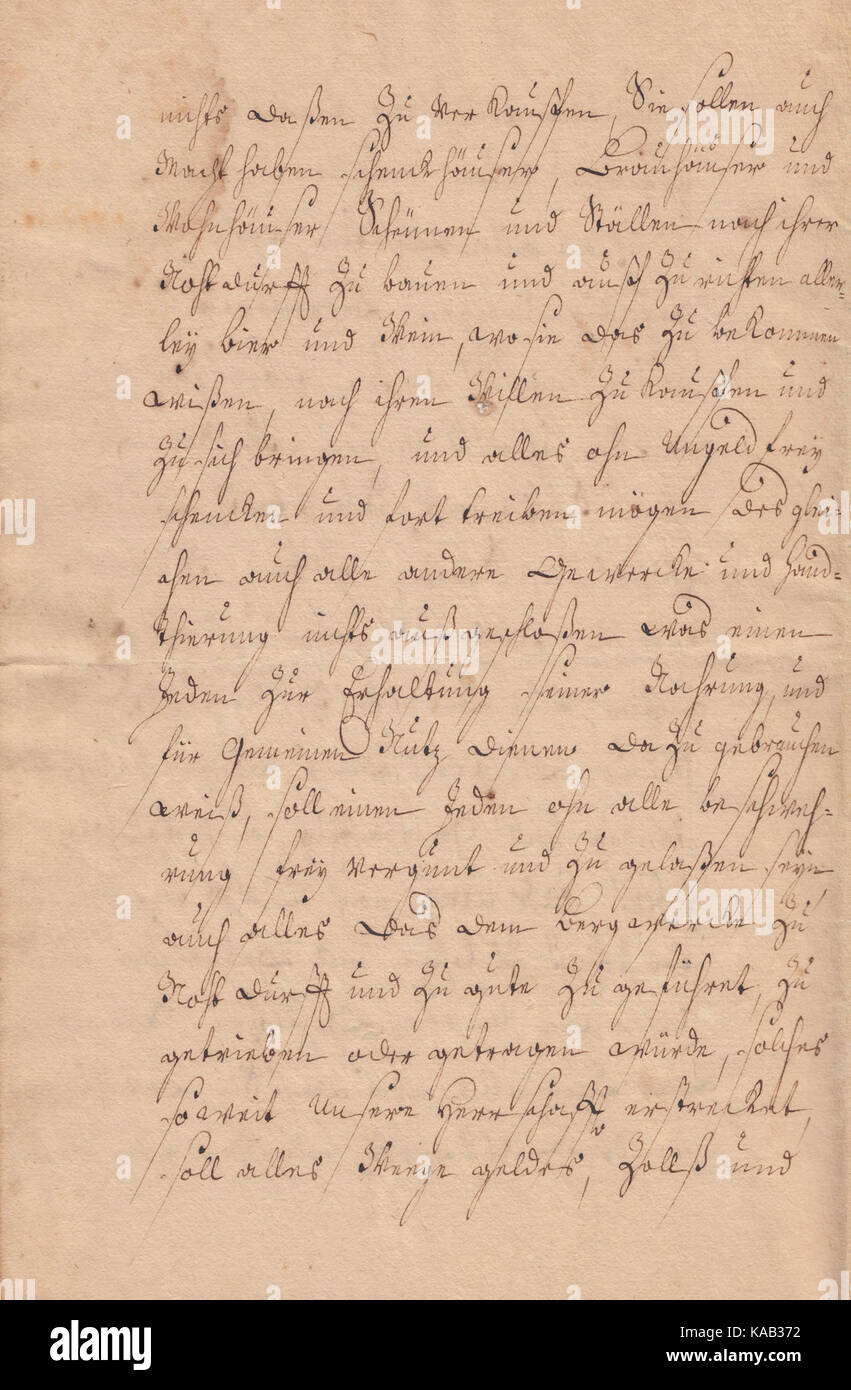 nichts daßen Zu verkauffen, Sie sollen auch
Macht haben schenckhäuser, Brauhäuser und
Wohnhäuser Scheünen und Ställen nach ihrer
Nohtdurfft Zu bauen und auff Zu richten aller-
ley bier und Wein, wo sie das Zu bekommen
wißen, nach ihren Willen Zu kauffen und
Zu sich bringen, und alles ohn Ungeld frey
schencken und fort treiben mögen des glei-
chen auch alle andere Gewercke und Hand-
thierung nichts außgeschloßen was einen
Jeden Zur Erhaltung seiner Nahrung, und
für Gemeinen Nutz dienen da Zu gebrauchen
weiß, soll einen Jeden ohn alle beschweh-
rung frey vergünt und Zu gelaßen seyn,
auch alles was dem bergwercke Zu
Nohtdurfft und Zu gute Zu geführet, Zu
getrieben oder getragen würde, solches
so weit Unsere Herrschafft erstrecket,
soll alles Weege geldes, Zollß und
alamy
Image ID: KAB372
www.alamy.com